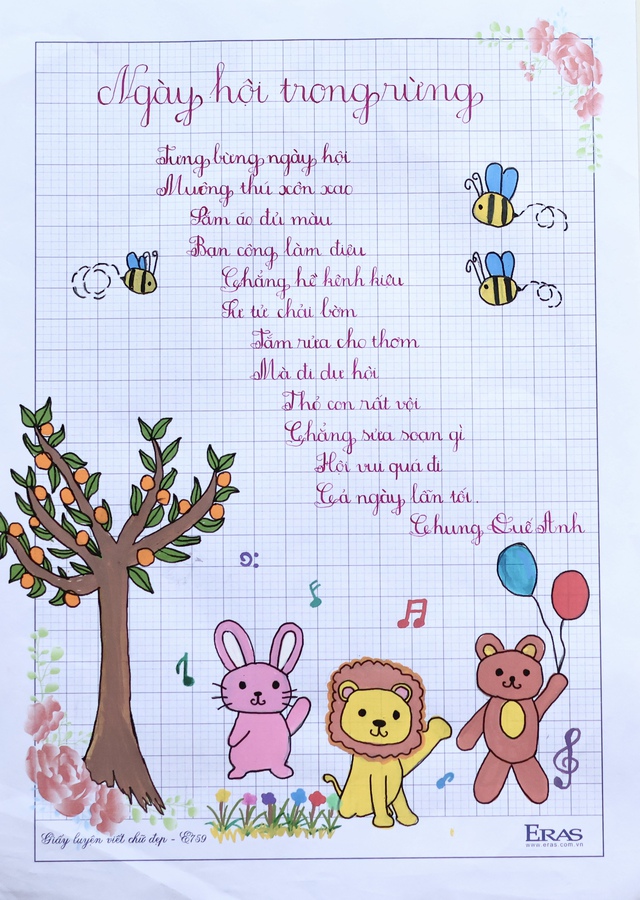 Ngày hội trong rừng
Tưng bừng ngày hội
Muông thú xôn xao
Sắm áo đủ màu
Bạn công làm điệu
Chẳng hề kênh kiêu
Sư tử chải bờm
Tắm rửa cho thơm
Mà đi dự hội
Thỏ con rất vội
Chẳng sửa soạn gì
Hội vui quá đi
Cả ngày lẫn tối.
Chung Quế Anh
Giấy luyện viết chữ đẹp - E759
ERAS
www.eras.com.vn